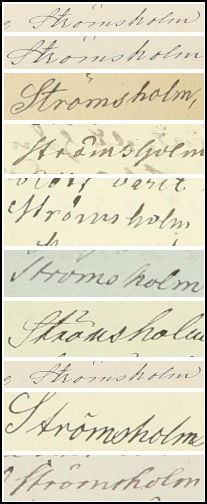 Strömsholm
Strömsholm
Strömsholm,
Strömsholm
Strömsholm
Strömsholm
Strömsholm
Strömsholm
Strömsholm
Strömsholm